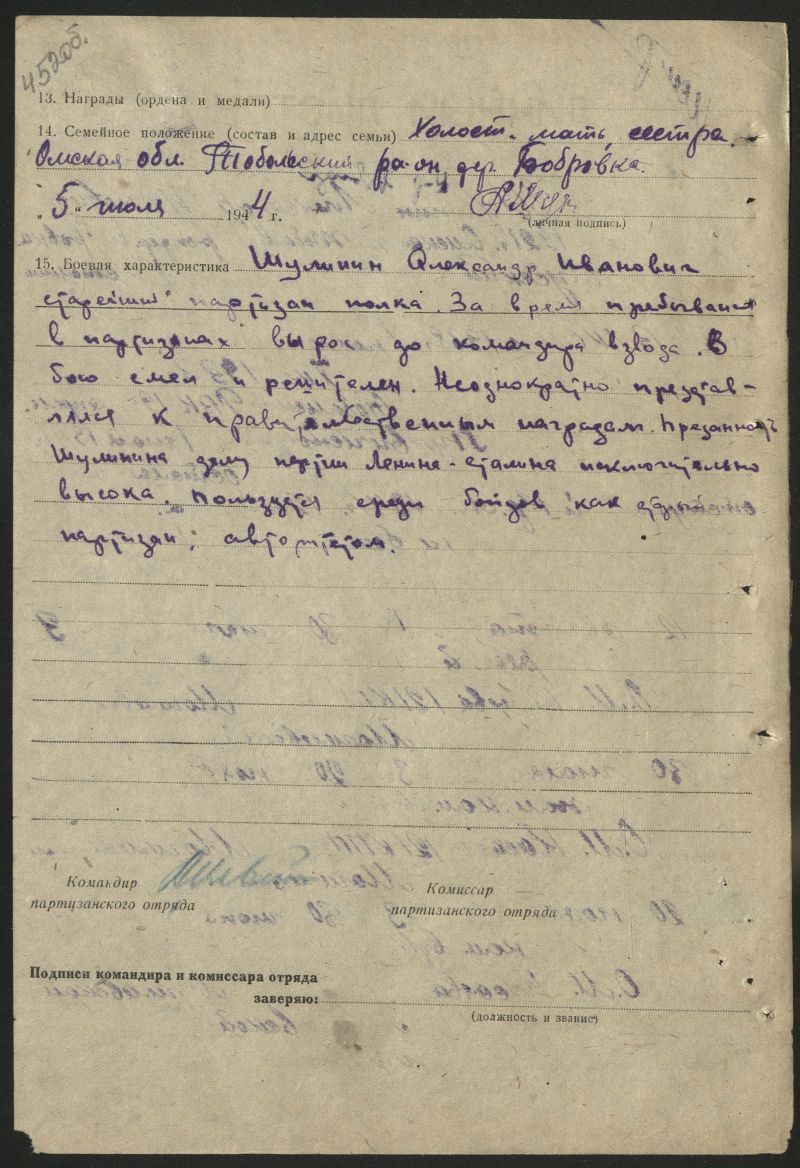 4520б.
13. Награды (ордена и медали)
14. Семейное положение (состав и адрес семьи) Холост. мать, сестра.
Омская обл. Тобольский ра-он, дер. Бобровка.
„5" июля 1944 г.
(личная подпись)
15. Боевая характеристика Шулинин Александр Иванович
старейший партизан полка. За время пребывания
в партизанах вырос до командира взвода. В
бою смел и решителен. Неоднократно представ-
лялся к правительственным наградам. Преданность
Шулинина делу партии Ленина-Сталина исключительно
высока. Пользуется среди бойцов как старый
партизан, авторитетом.
Командир
партизанского отряда
Комиссар
партизанского отряда
Подписи командира и комиссара отряда
заверяю:
(должность и звание)